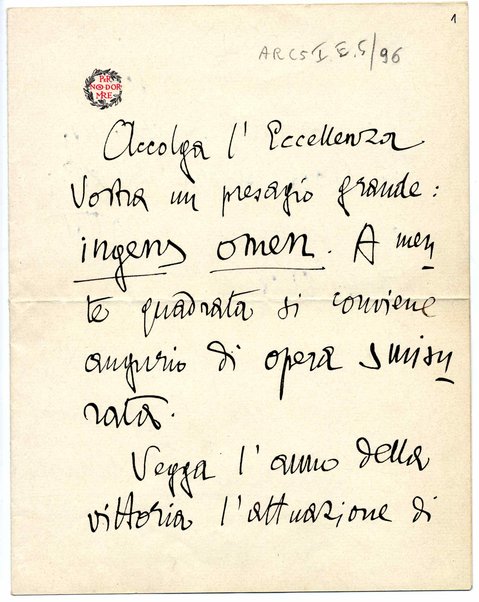 1
ARCS I. E. 5/96
PER
NON DOR
MIRE
Accolga l'Eccellenza
Vostra un presagio grande:
ingens omen. A men
te quadrata si conviene
augurio di opera smisu
rata.
Vegga l'anno della
vittoria l'attuazione di